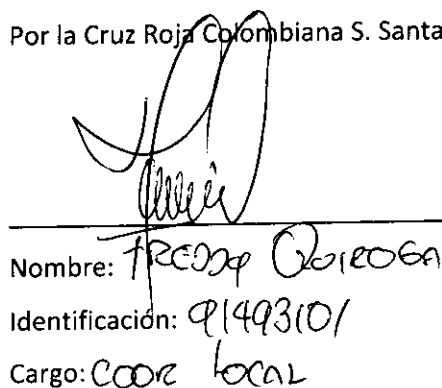 Por la Cruz Roja Colombiana S. Santa
Nombre: FREDDY QUIROGA
Identificación: 91493101
Cargo: COOR LOCAL